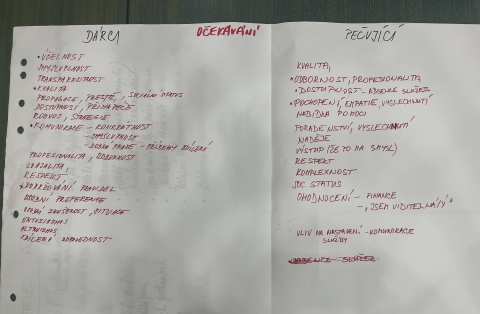 DÁRCI
OČEKÁVÁNÍ
• ÚČELNOST
SMYSLUPLNOST
TRANSPARENTNOST
• KVALITA
PROPAGACE, PRESTIŽ, SOCIÁLNÍ STATUS
DOSTUPNOST, PŘÍMÁ PÉČE
ROZVOJ, STRATEGIE
• KOMUNIKACE - KONKRÉTNOST
- SMYSLUPNOST
- DOBRÁ PRAXE - PŘÍBĚHY SDÍLENÍ
PROFESIONALITA, ODBORNOST
LOAJALITA,
RESPEKT
• DODRŽOVÁNÍ PRAVIDEL
OSOBNÍ PREFERENCE
OSOBNÍ ZKUŠENOST, SITUACE
ENTUSIASMUS
ALTRUISMUS
SDÍLENÁ ODPOVĚDNOST
PEČUJÍCÍ
KVALITA,
• ODBORNOST, PROFESIONALITA
• DOSTUPNOST - ABSENCE SLUŽEB
• POCHOPENÍ, EMPATIE, VYSLECHNUTÍ
NABÍDKA POMOCI
PORADENSTVÍ, VYSLECHNUTÍ
NADĚJE
VÝSTUP (ŽE TO MÁ SMYSL)
RESPEKT
KOMPLEXNOST
SOC STATUS
OHODNOCENÍ - FINANCE
- „JSEM VIDITELNÁ/Ý"
VLIV NA NASTAVENÍ - KOMUNIKACE
SLUŽBY
ABSENCE SLUŽEB